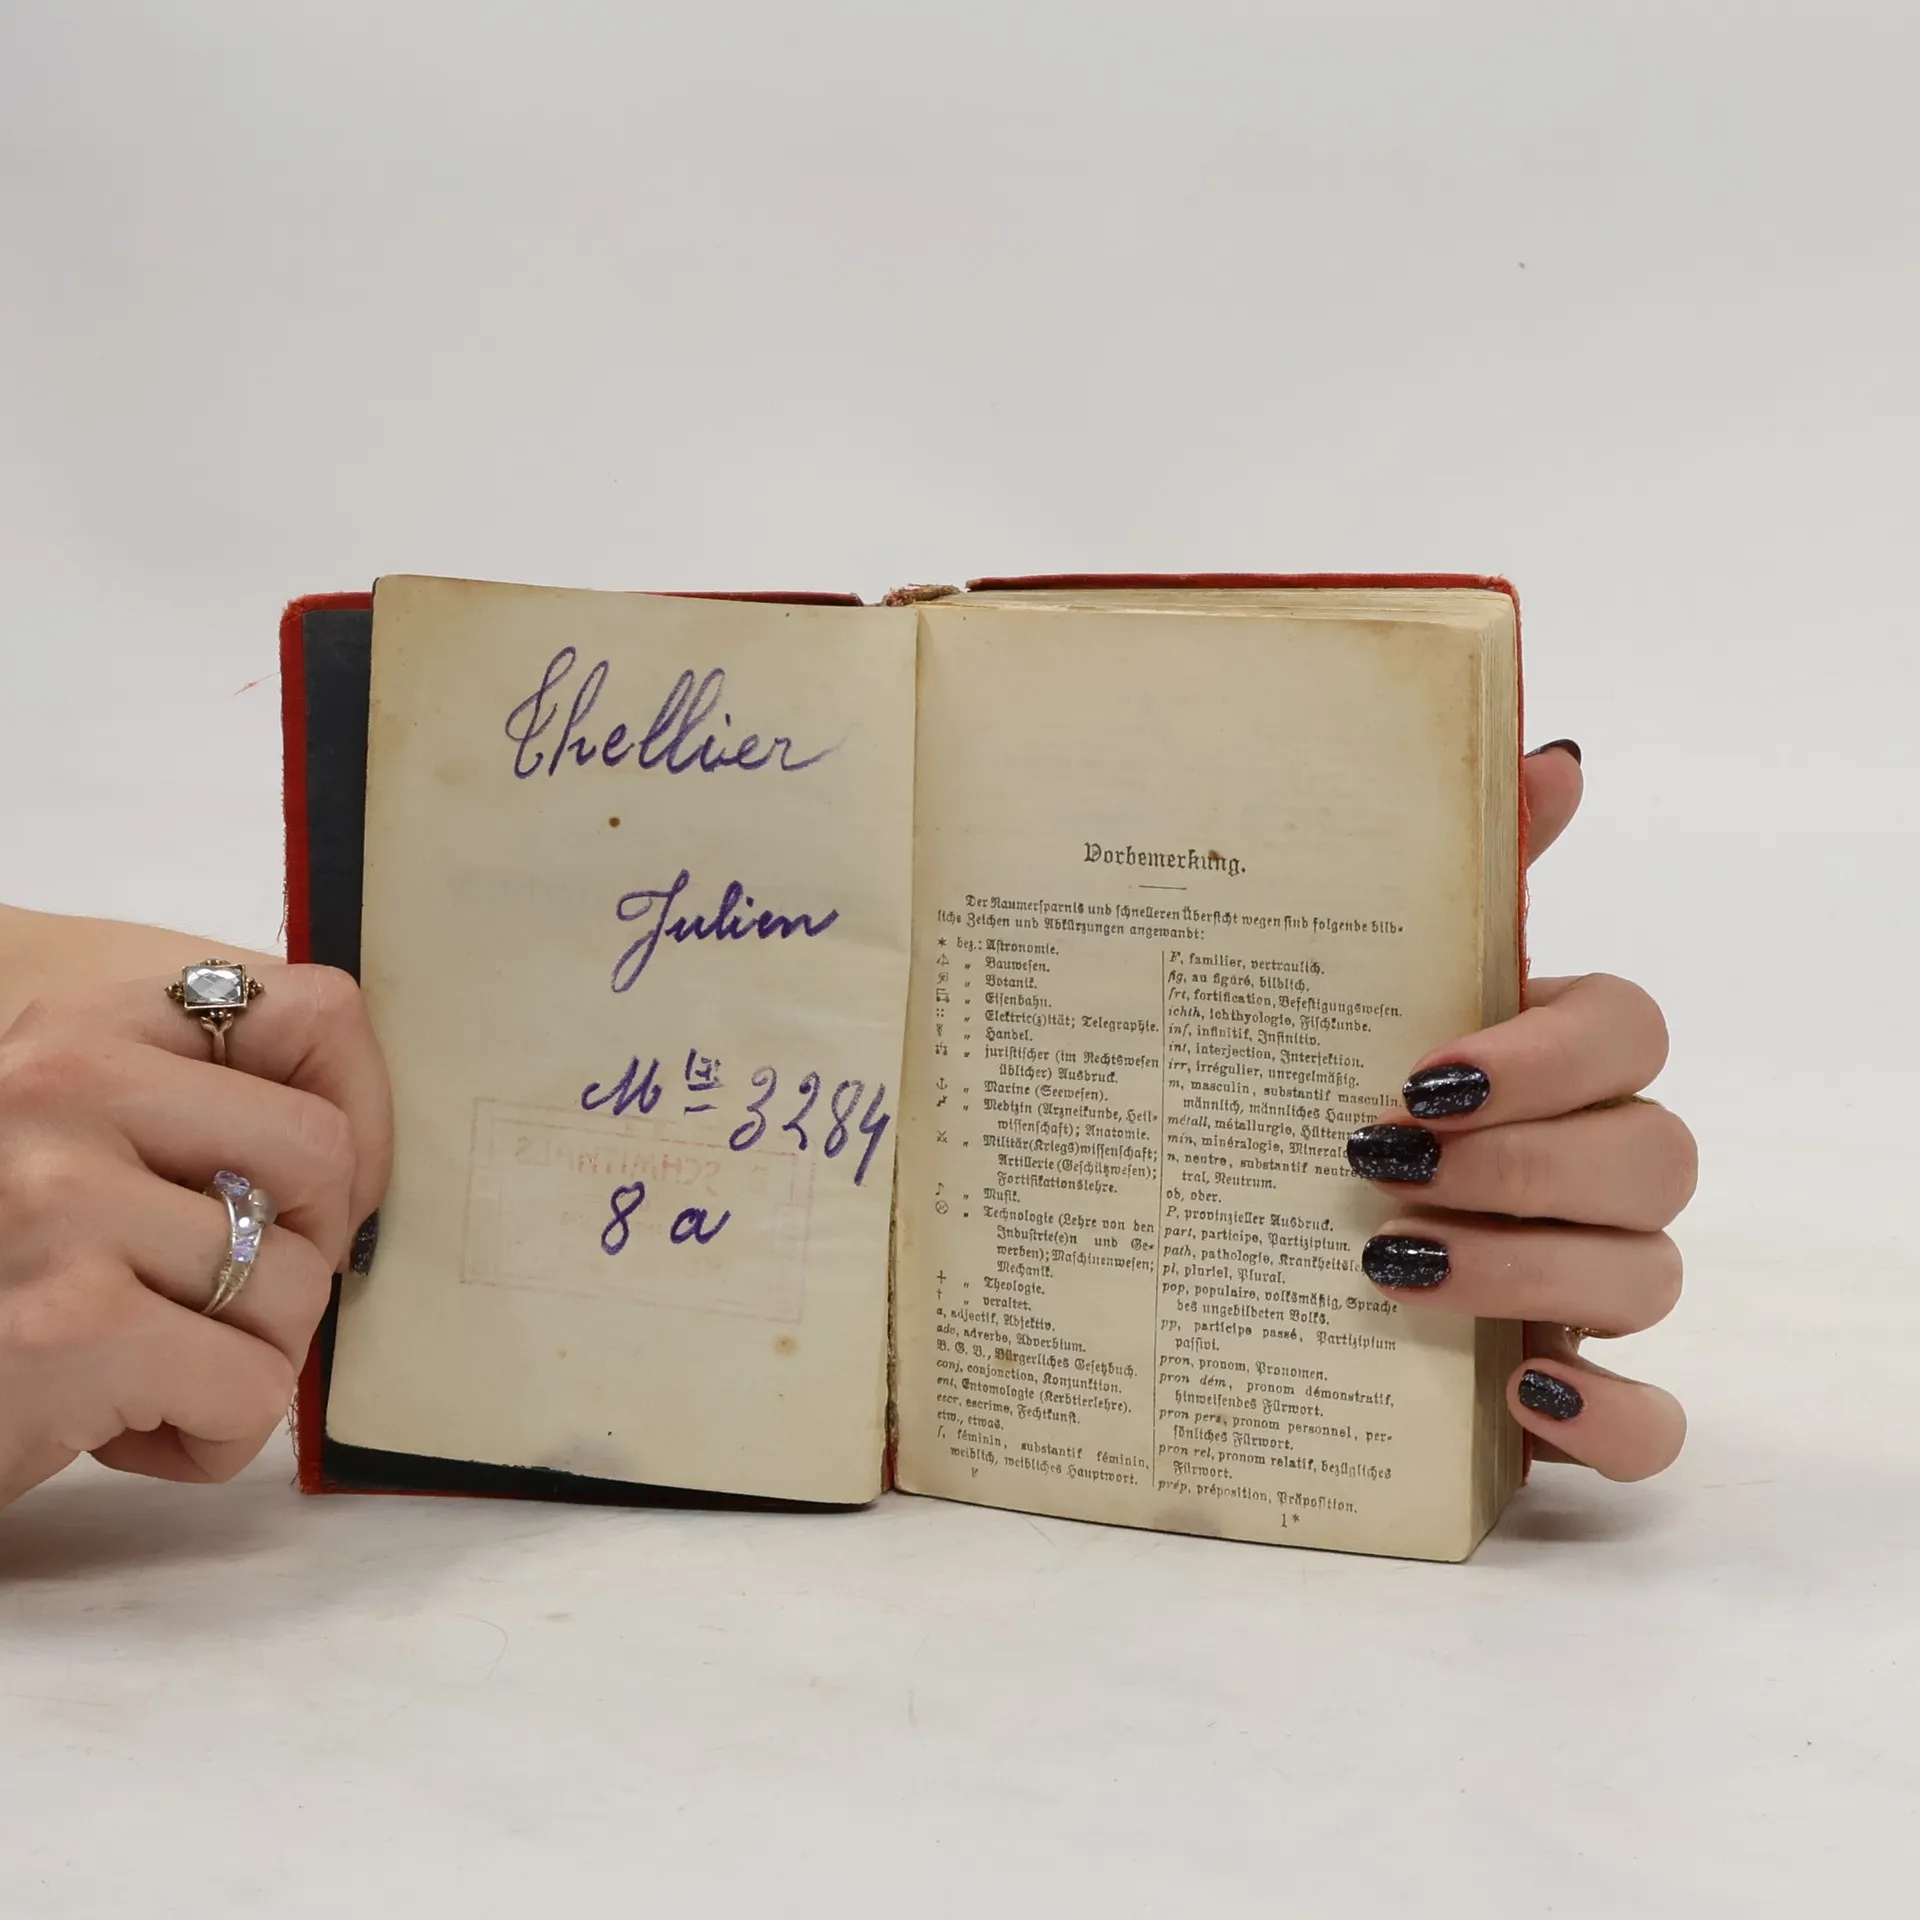 Thellier
Julien
Mle 3284
8 a
Vorbemerkung.
Der Raumersparnis und schnelleren Übersicht wegen sind folgende bild-
liche Zeichen und Abkürzungen angewandt:
* bez.: Astronomie.
„ Bauwesen.
„ Botanik.
„ Eisenbahn.
„ Elektric(z)ität; Telegraphie.
„ Handel.
„ juristischer (im Rechtswesen
üblicher) Ausdruck.
⚓ „ Marine (Seewesen).
„ Medizin (Arzneikunde, Heil-
wissenschaft); Anatomie.
⚔ „ Militär(Kriegs)wissenschaft;
Artillerie (Geschützwesen);
Fortifikationslehre.
♪ „ Musik.
„ Technologie (Lehre von den
Industrie(e)n und Ge-
werben); Maschinenwesen;
Mechanik.
+ „ Theologie.
† „ veraltet.
a, adjectif, Adjektiv.
adv, adverbe, Adverbium.
B. G. B., Bürgerliches Gesetzbuch.
conj, conjonction, Konjunktion.
ent, Entomologie (Kerbtierlehre).
escr, escrime, Fechtkunst.
etw., etwas.
f, féminin, substantif féminin,
weiblich, weibliches Hauptwort.
F, familier, vertraulich.
fig, au figuré, bildlich.
frt, fortification, Befestigungswesen.
ichth, ichthyologie, Fischkunde.
inf, infinitif, Infinitiv.
int, interjection, Interjektion.
irr, irrégulier, unregelmäßig.
m, masculin, substantif masculin,
männlich, männliches Hauptw
métall, métallurgie, Hütten
min, minéralogie, Mineral
n, neutre, substantif neutre,
tral, Neutrum.
ob, oder.
P, provinzieller Ausdruck.
part, participe, Partizipium.
path, pathologie, Krankheitsle
pl, pluriel, Plural.
pop, populaire, volksmäßig, Sprache
des ungebildeten Volks.
pp, participe passé, Partizipium
passivi.
pron, pronom, Pronomen.
pron dém, pronom démonstratif,
hinweisendes Fürwort.
pron pers, pronom personnel, per-
sönliches Fürwort.
pron rel, pronom relatif, bezügliches
Fürwort.
prép, préposition, Präposition.
1*